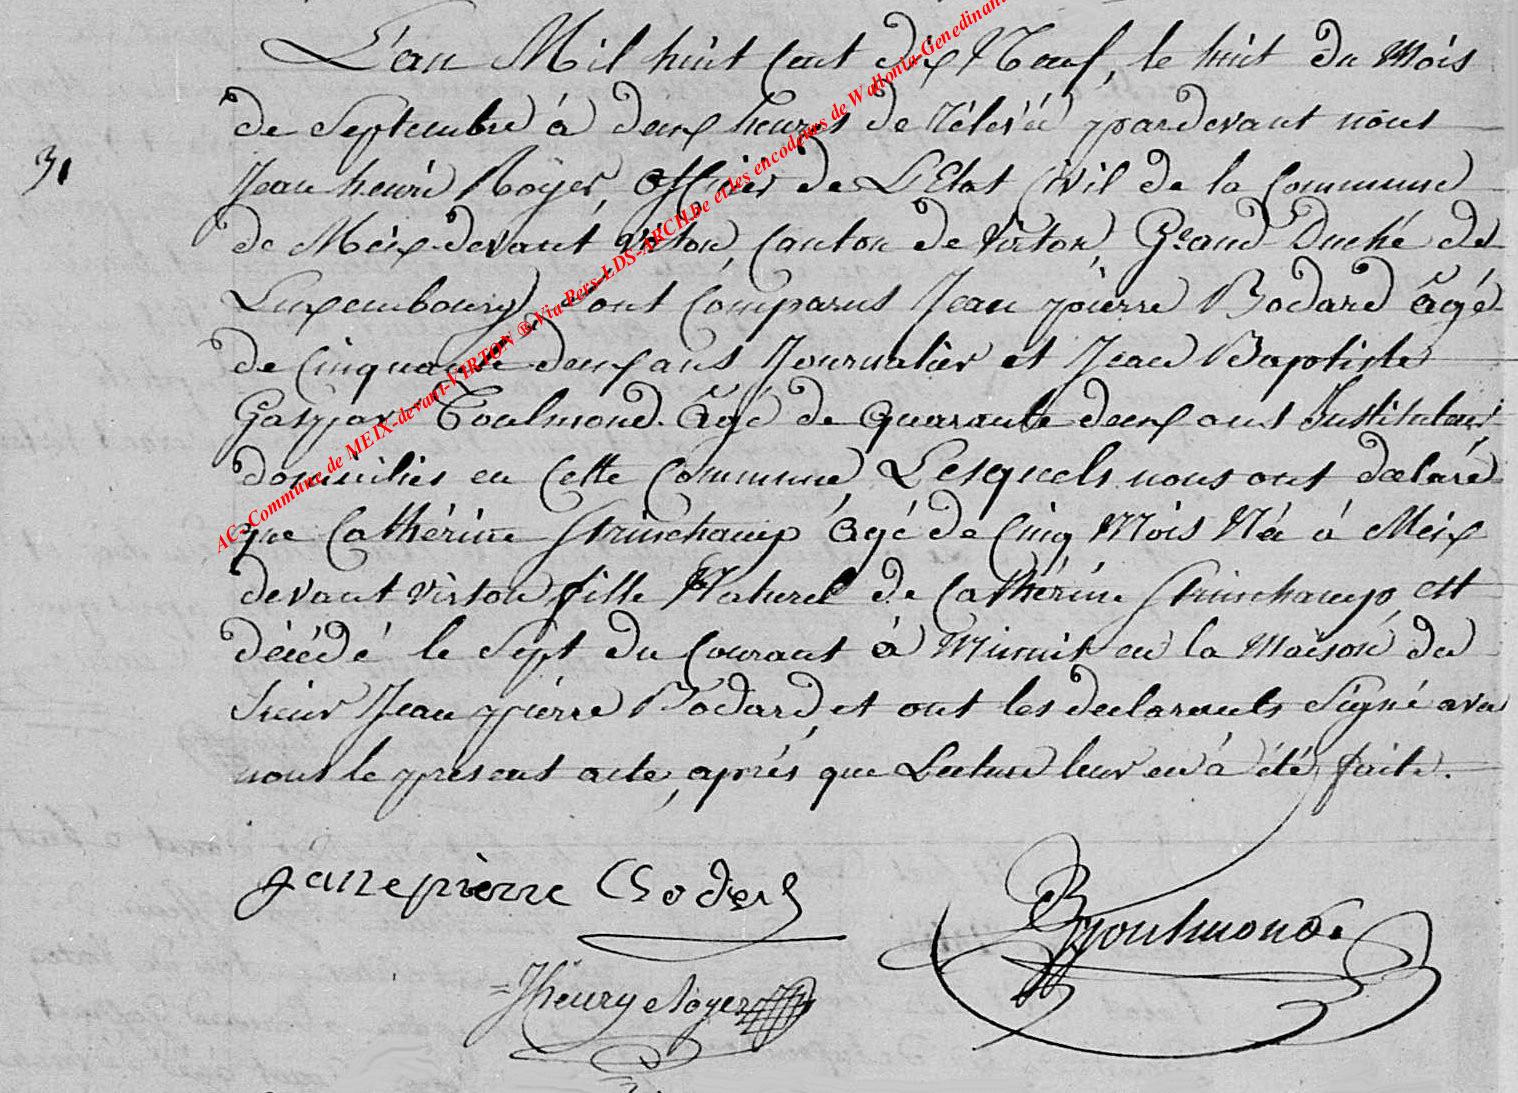 L'an Mil huit Cent dix Neuf, le huit du Mois
de Septembre à deux heures de rélévée pardevant nous
31
Jean henri Royer, officier de L'Etat Civil de la Commune
de Meix devant virton, Canton de Virton, Grand Duché de
Luxembourg, sont Comparus Jean pierre Bodard âgé
de Cinquante deux ans Journalier et Jean Baptiste
Gaspar Toulmond âgé de quarante deux ans Instituteur
domiciliés en Cette Commune, Lesquels nous ont déclaré
que Cathérine Strinchamp âgé de Cinq Mois Née à Meix
devant virton fille Naturel de Cathérine Strinchamp, est
décédé le Sept du Courant à Minuit en la Maison du
Sieur Jean pierre Bodard, et ont les declarants Signé avec
nous le present acte, aprés que Lecture leur en à été faite.
jane pierre Bodard
Toulmond
JhenRy Royer
AC-Commune de MEIX-devant-VIRTON ® Via Pers-LDS-ARCH.be et les encodeurs de Wallonia-Genedinant